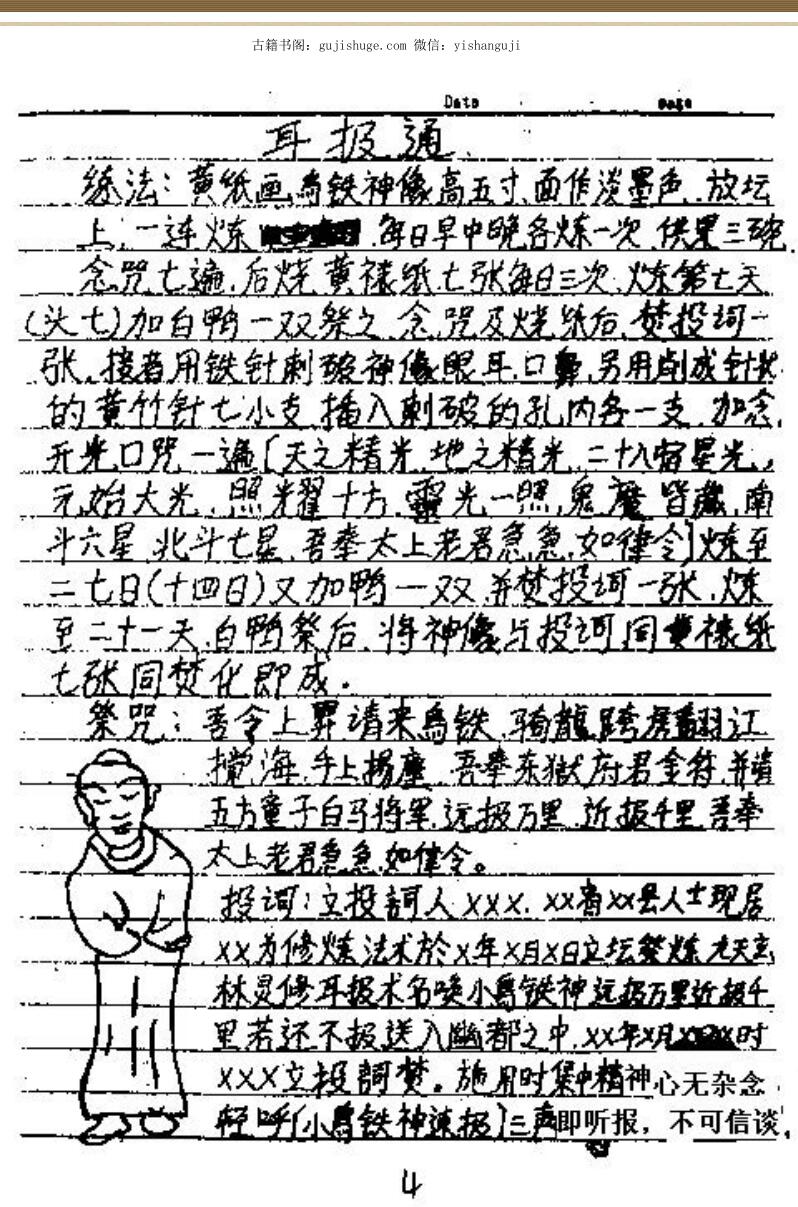 古籍书阁：gujishuge.com 微信：yishanguji
Date page
耳报通
练法：黄纸画乌铁神像高五寸，面作淡墨色，放坛
上，一连炼 每日早中晚各炼一次，供果三碗，
念咒七遍，后烧黄裱纸七张每日三次，炼第七天
(头七)加白鸭一双祭之，念咒及烧纸后，焚投词一
张，接者用铁针刺破神像眼耳口鼻，另用削成针状
的黄竹针七小支，插入刺破的孔内各一支，加念，
开光口咒一遍[天之精光，地之精光，二十八宿星光，
元始大光，照耀十方，靈光一照，鬼魔皆藏，南
斗六星，北斗七星，吾奉太上老君急急，如律令]炼至
二七日(十四日)又加鸭一双，并焚投词一张，炼
至二十一天，白鸭祭后，将神像与投词，同黄裱纸
七张同焚化即成。
祭咒：吾令上界请来乌铁，骑龍跨虎翻江
搅海，手上揚塵，吾奉东獄府君金符，并请
五方童子白马将军，远报万里，近报千里，吾奉
太上老君急急，如律令。
投词：立投詞人XXX，XX省XX县人士现居
XX为修炼法术於X年X月X日立坛祭炼九天玄
林灵修耳报术名唤小乌铁神远报万里近报千
里若还不报送入幽都之中，XX年X月 X时
XXX立投詞焚。施用时集中精神心无杂念，
轻呼[小乌铁神速报]三声即听报，不可信谈，
4